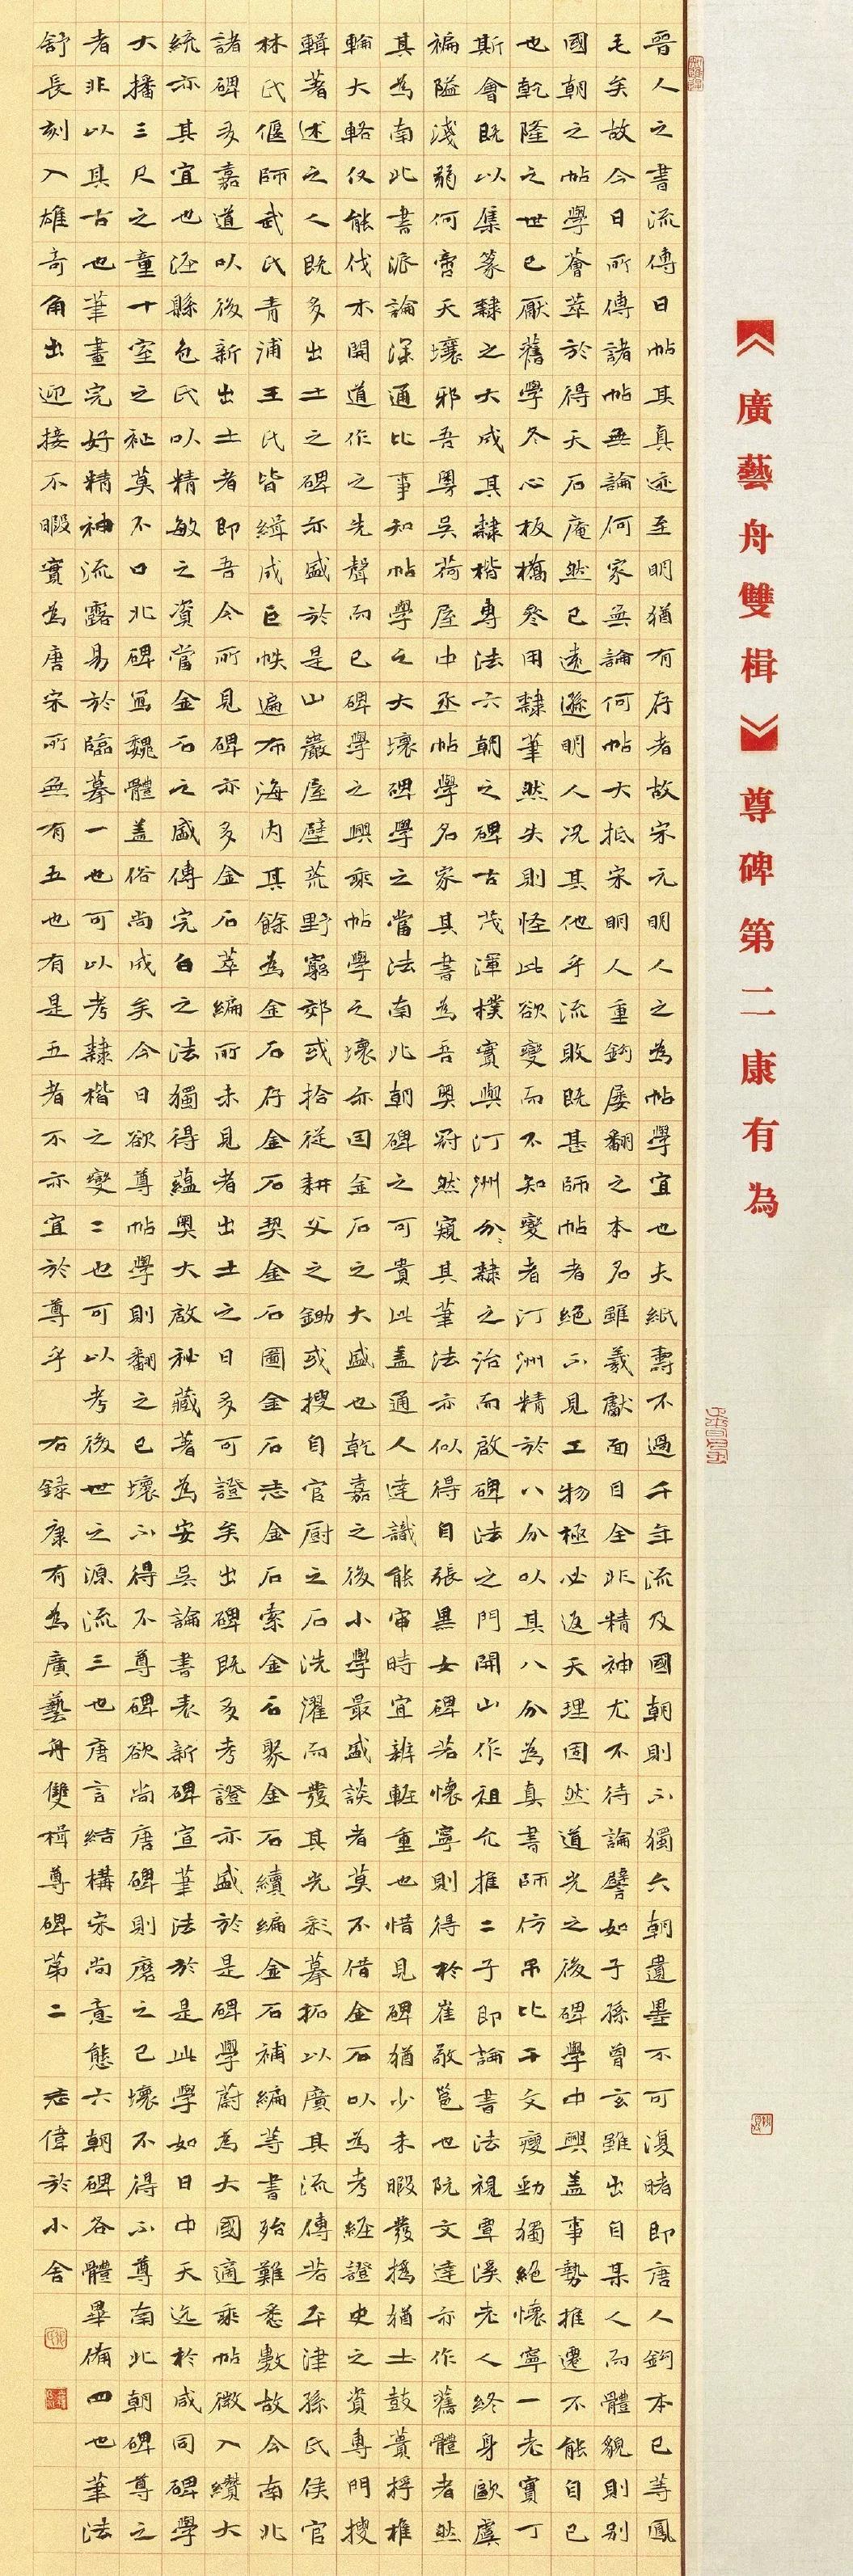 《廣藝舟雙楫》尊碑第二康有為
晉人之書流傳曰帖其真迹至明猶有存者故宋元明人之為帖學宜也夫紙壽不過千年流及國朝則不獨六朝遺墨不可復睹即唐人鉤本已等鳳
毛矣故今日所傳諸帖無論何家無論何帖大抵宋明人重鉤屢翻之本名雖羲獻面目全非精神尤不待論譬如子孫曾玄雖出自某人而體貌則別
國朝之帖學薈萃於得天石庵然已遠遜明人況其他乎流敗既甚師帖者絕不見工物極必返天理固然道光之後碑學中興蓋事勢推遷不能自已
也乾隆之世已厭舊學冬心板橋參用隸筆然失則怪此欲變而不知變者汀洲精於八分以其八分為真書師仿吊比干文瘦勁獨絕懷寧一老實丁
斯會既以集篆隸之大成其隸楷專法六朝之碑古茂渾樸實與汀洲分隸之治而啟碑法之門開山作祖允推二子即論書法視覃溪老人終身歐虞
褊隘淺弱何啻天壤邪吾粵吳荷屋中丞帖學名家其書為吾粵冠然窺其筆法亦似得自張黑女碑若懷寧則得於崔敬邕也阮文達亦作舊體者然
其為南北書派論深通此事知帖學之大壞碑學之當法南北朝碑之可貴此蓋通人達識能審時宜辨輊重也惜見碑猶少未暇發撝猶土鼓蕢桴椎
輪大輅仅能伐木開道作之先聲而已碑學之興乘帖學之壞亦因金石之大盛也乾嘉之後小學最盛談者莫不借金石以為考經證史之資專門搜
輯著述之人既多出土之碑亦盛於是山巖屋壁荒野窮郊或拾從耕父之鋤或搜自官厨之石洗濯而發其光彩摹拓以廣其流傳若平津孫氏侯官
林氏偃師武氏青浦王氏皆緝成巨帙遍布海內其餘為金石存金石契金石圖金石志金石索金石聚金石續編金石補編等書殆難悉數故今南北
諸碑多嘉道以後新出土者即吾今所見碑亦多金石萃編所未見者出土之日多可證矣出碑既多考證亦盛於是碑學蔚為大國適乘帖微入纘大
統亦其宜也涇縣包氏以精敏之資當金石之盛傳完白之法獨得蘊奧大啟秘藏著為安吳論書表新碑宣筆法於是此學如日中天迄於咸同碑學
大播三尺之童十室之社莫不口北碑寫魏體蓋俗尚成矣今日欲尊帖學則翻之已壞不得不尊碑欲尚唐碑則磨之已壞不得不尊南北朝碑尊之
者非以其古也筆畫完好精神流露易於臨摹一也可以考隸楷之變二也可以考後世之源流三也唐言結構宋尚意態六朝碑各體畢備四也筆法
舒長刻入雄奇角出迎接不暇實為唐宋所無有五也有是五者不亦宜於尊乎 右錄康有為廣藝舟雙楫尊碑第二 志偉於小舍